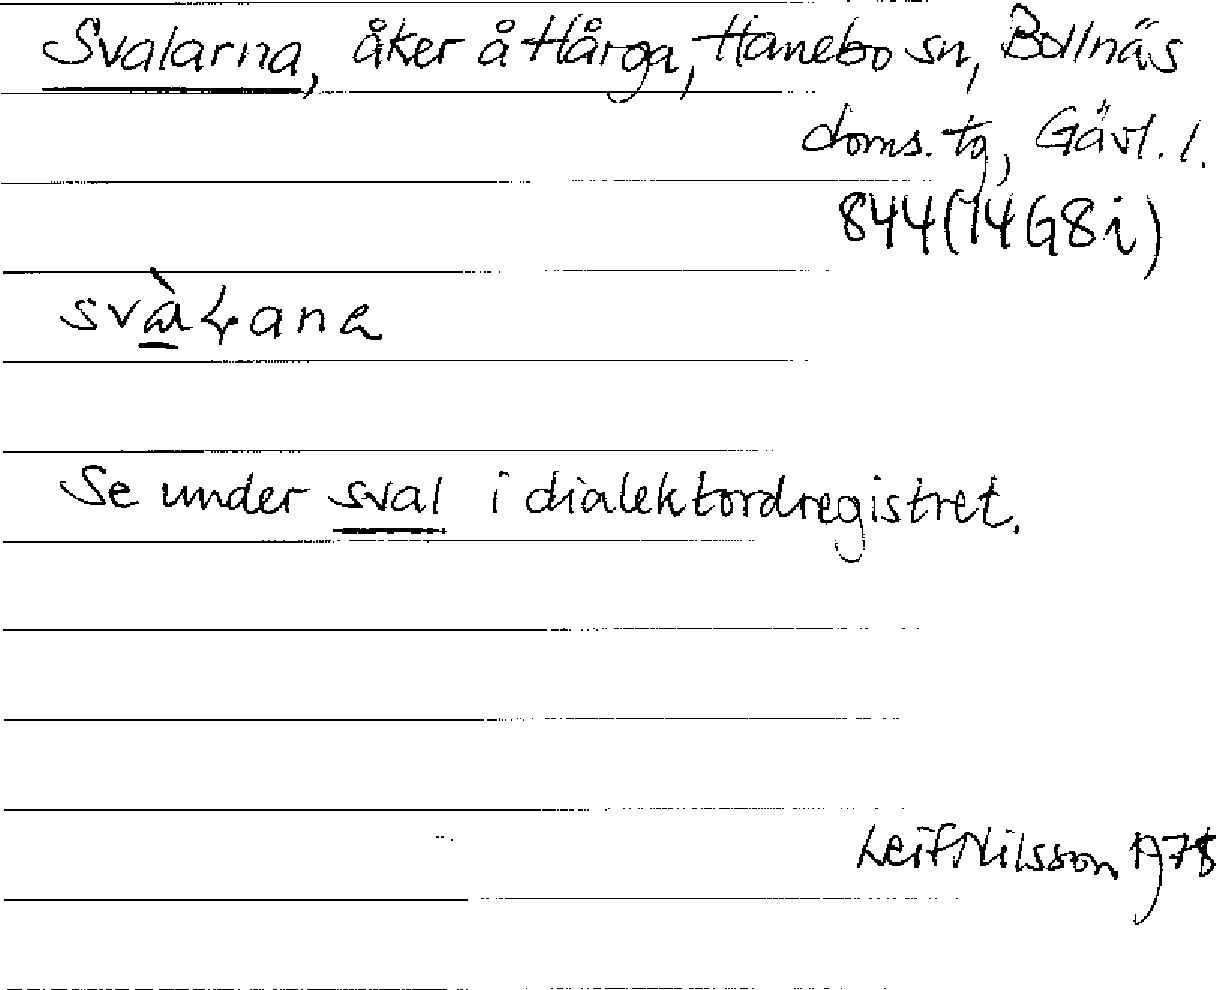 Svalarna, åker å Hårga, Hanebo sn, Bollnäs
doms. tg, Gävl. l.
844 (14G8i)
Se under sval i dialektordregistret.
Leif Nilsson